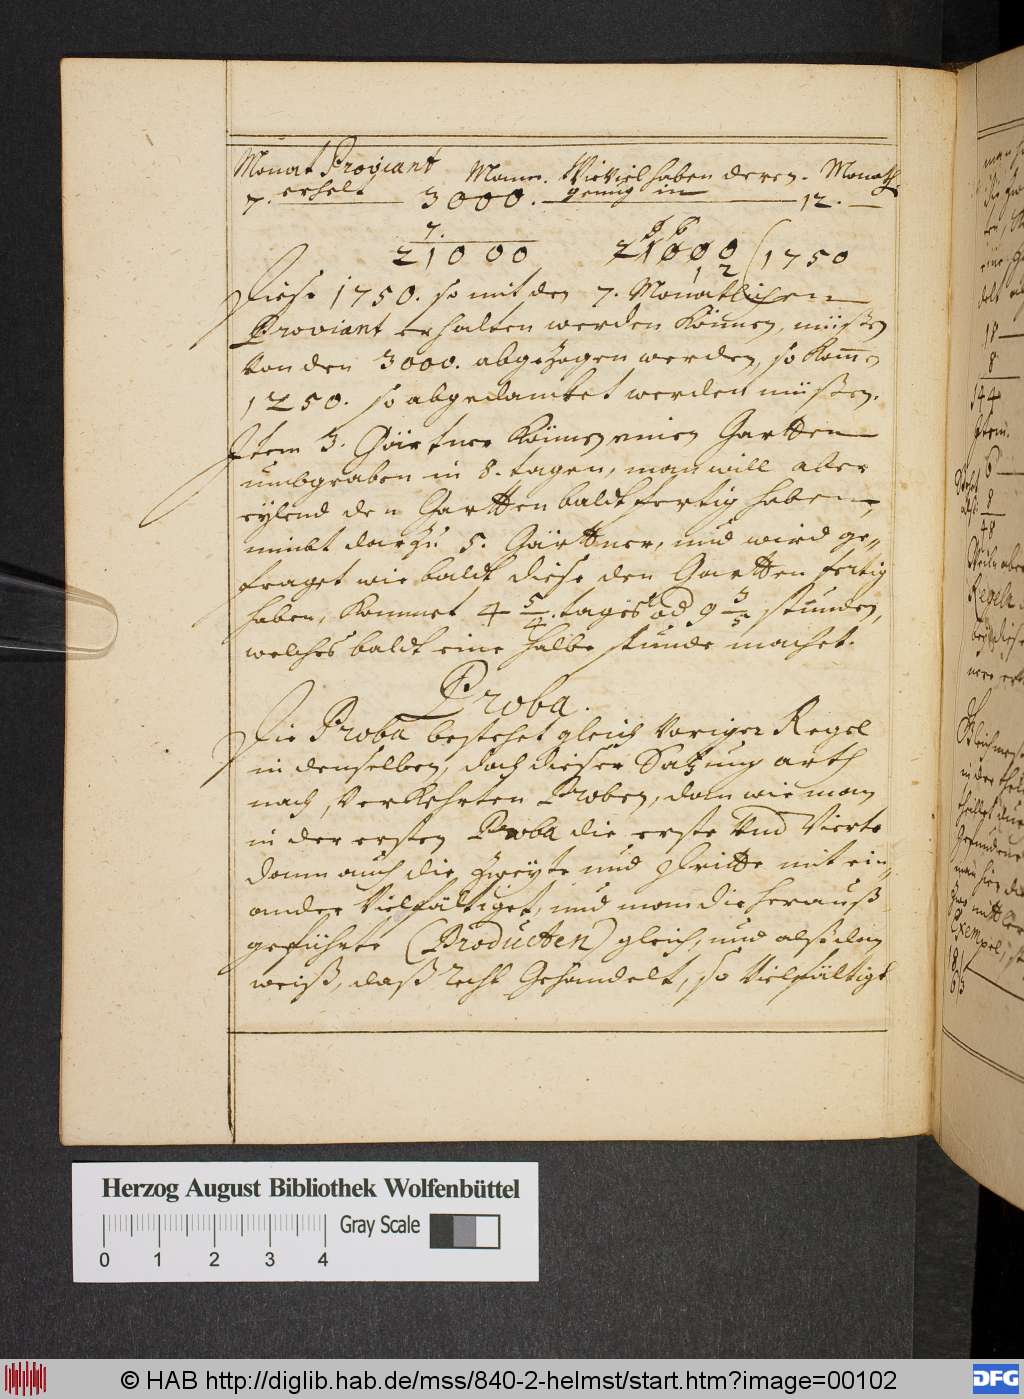 Monat Proviant Mann. Wie Viel haben deren. Monath
7. erhelt 3000. genug in 12.
7.
21000 21000 (1750
1 2
Diese 1750. so mit den 7. Monatlichen
Proviant erhalten werden können, müßen
von den 3000. abgezogen werden, so komen
1250. so abgedancket werden müßen.
Item 3. Gärtner können einen Gartten
umbgraben in 8. tagen, man will aber
eylend den Gartten baldt fertig haben,
nimbt darzu 5. Gärttner, und wird ge-
fraget wie baldt diese den Gartten fertig
haben, kommet 4 5/4. tages ad 9 3/5 stunden,
welches baldt eine halbe stunde machet.
Proba.
Die Proba bestehet gleich voriger Regel
in denselben, doch dieser Satzung arth
nach verkehrten Proben, dan wie man
in der ersten Proba die erste und Vierte
dann auch die zweyte und dritte mit ein-
ander Vielfältiget, und man die herauß
geführte (Producten) gleich, und alsdan
weiß, daß recht gehandelt, so Vielfältigt
18
8
144
Item.
6
8
48
Regeln
Exempel
Herzog August Bibliothek Wolfenbüttel
Gray Scale
0 1 2 3 4
© HAB http://diglib.hab.de/mss/840-2-helmst/start.htm?image=00102
DFG